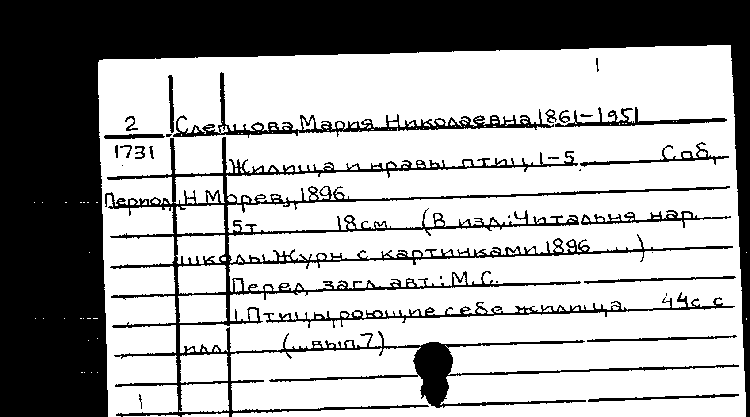 1
2 Слепцова, Мария Николаевна, 1861-1951
1731 Жилища и нравы птиц. 1-5. Спб.,
Период. Н. Морев, 1896.
5т. 18см. (В изд.: Читальня нар.
школы. Журн. с картинками. 1896 ...).
Перед загл. авт.: М.С.
1. Птицы, роющие себе жилища. 44с. с
илл. (... вып. 7)
1